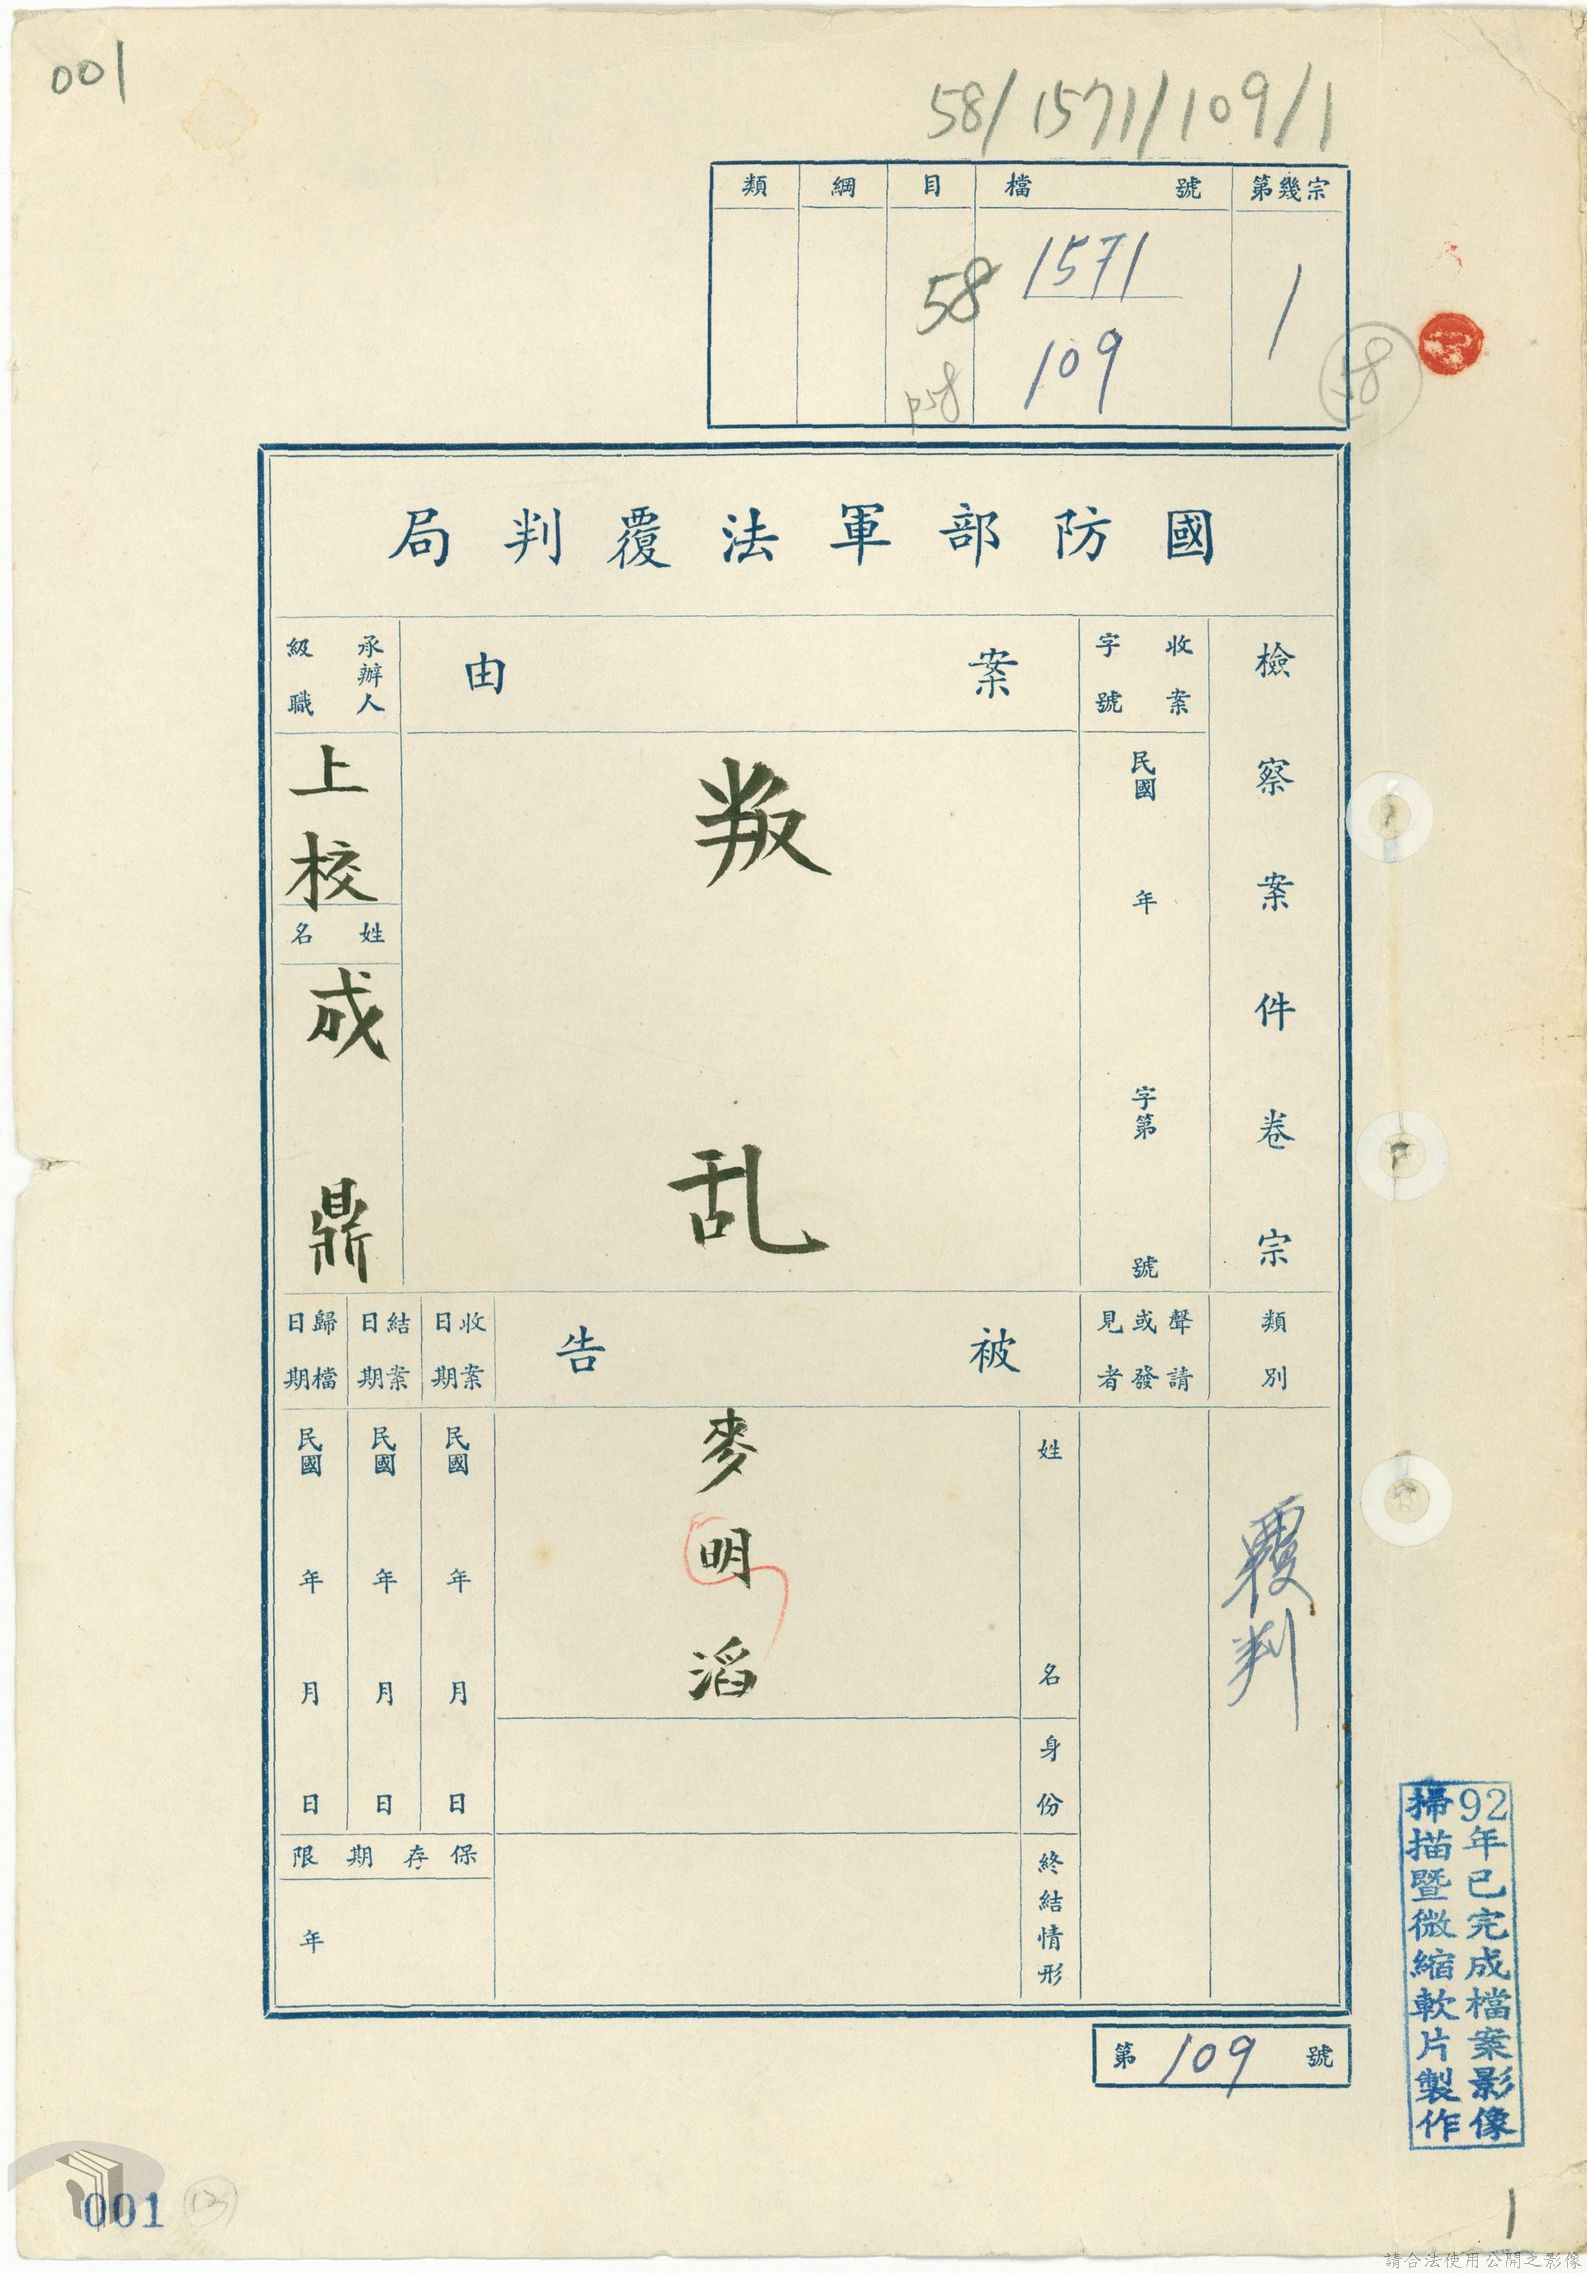 001
58/1571/109/1
第幾宗
檔號
目
綱
類
1
1571
109
58
P58
58
國防部軍法覆判局
檢察案件卷宗
收案字號
民國 年 字第 號
案由
叛乱
承辦人級職
上校
姓名
成鼎
類別
覆判
聲請或發見者
被告
姓名
麥明滔
身份
終結情形
收案日期
民國 年 月 日
結案日期
民國 年 月 日
歸檔日期
民國 年 月 日
保存期限
年
第109號
92年已完成檔案影像
掃描暨微縮軟片製作
001
1
請合法使用公開之影像